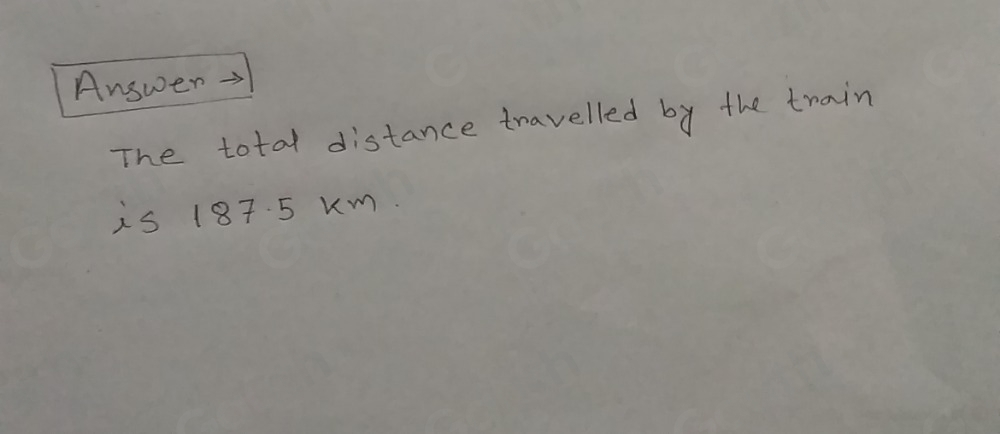 Answer →
The total distance travelled by the train
is 187.5 km.